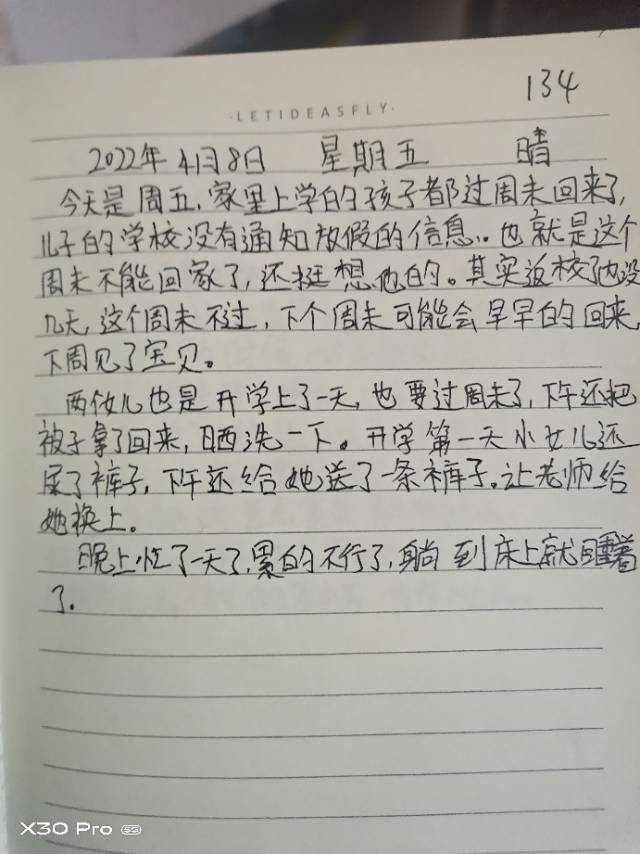 134
·LETIDEASFLY·
2022年4月8日 星期五 晴
今天是周五，家里上学的孩子都过周末回来了，
儿子的学校没有通知放假的信息，也就是这个
周末不能回家了，还挺想他的。其实返校了也没
几天，这个周末不过，下个周末可能会早早的回来，
下周见了宝贝。
两女儿也是开学上了一天，也要过周末了，下午还把
被子拿了回来，晒洗一下。开学第一天小女儿还
尿了裤子，下午还给她送了一条裤子。让老师给
她换上。
晚上忙了一天了，累的不行了，躺到床上就睡着
了.
X30 Pro 5G